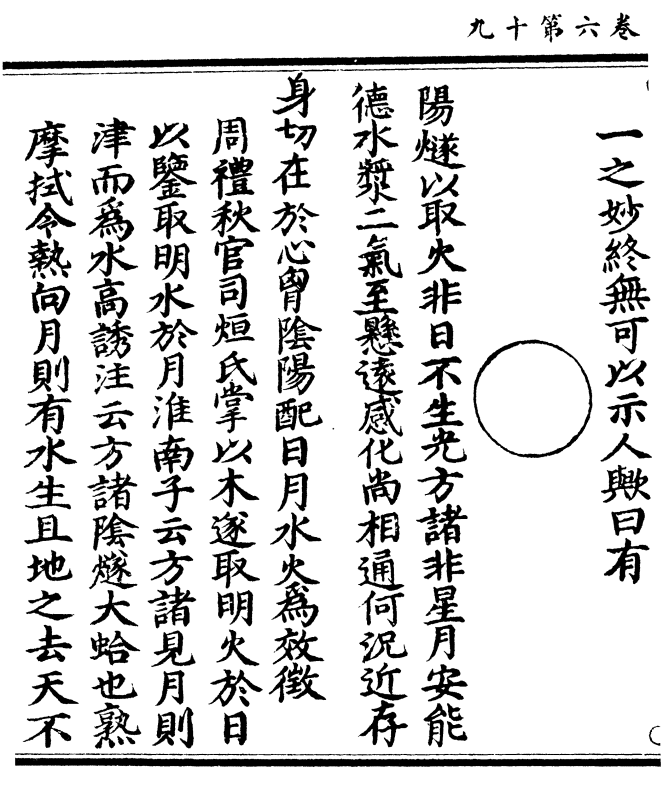 卷六第十九
一之妙終無可以示人歟曰有
陽燧以取火非日不生光方諸非星月安能
德水漿二氣至懸遠感化尚相通何況近存
身切在於心胷陰陽配日月水火為效徵
周禮秋官司烜氏掌以木遂取明火於日
以鑒取明水於月淮南子云方諸見月則
津而為水高誘注云方諸陰燧大蛤也熟
摩拭令熱向月則有水生且地之去天不